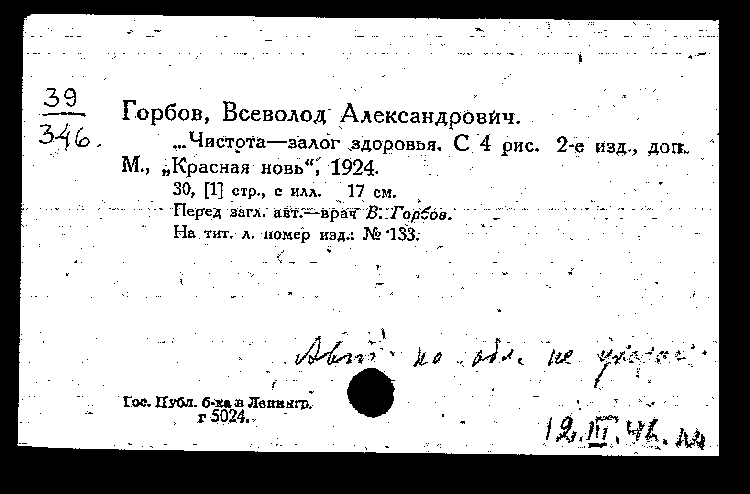 39
346.
Горбов, Всеволод Александрович.
...Чистота—залог здоровья. С 4 рис. 2-е изд., доп.
М., „Красная новь“, 1924.
30, [1] стр., с илл. 17 см.
Перед загл. авт.—врач В. Горбов.
На тит. л. номер изд.: № 133.
Авт. по обл. не указан
Гос. Публ. б-ка в Ленингр.
г 5024.
12.III.46.